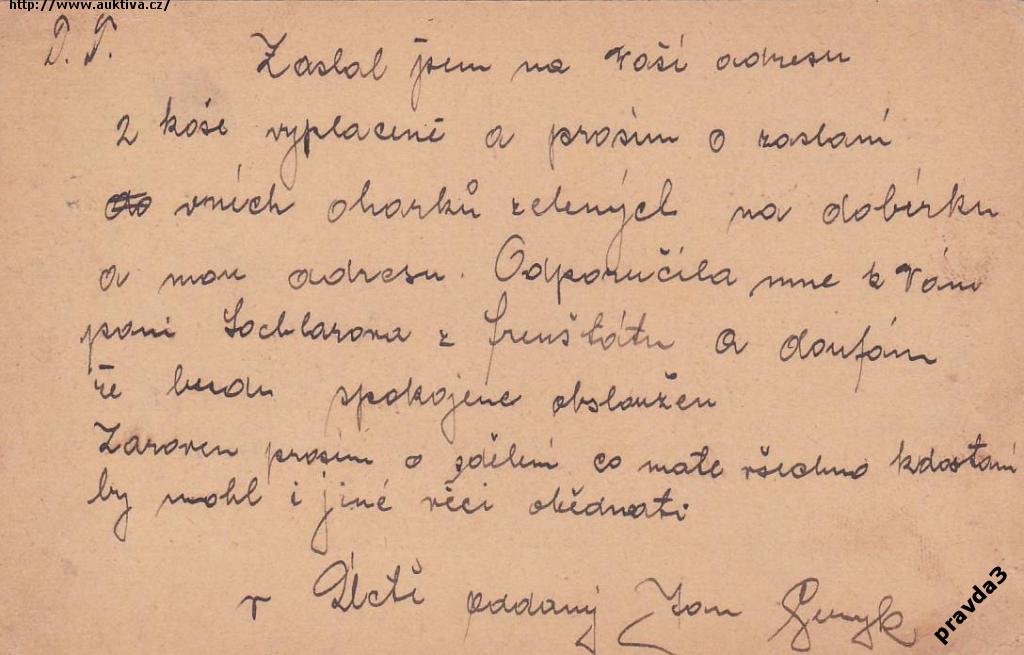 http://www.auktiva.cz/
P. T.
Zaslal jsem na Vaší adresu
2 koše vyplaceně a prosim o zaslaní
vnich oharků zelených na dobírku
a mou adresu. Odporučila mne k Vám
pani z Frenštátu a doufám
že budu spokojene obsloužen
Zaroven prosim o sdělení co mate všechno kdostaní
by mohl i jiné věci obědnati
v Úctě oddaný Jan
pravda3